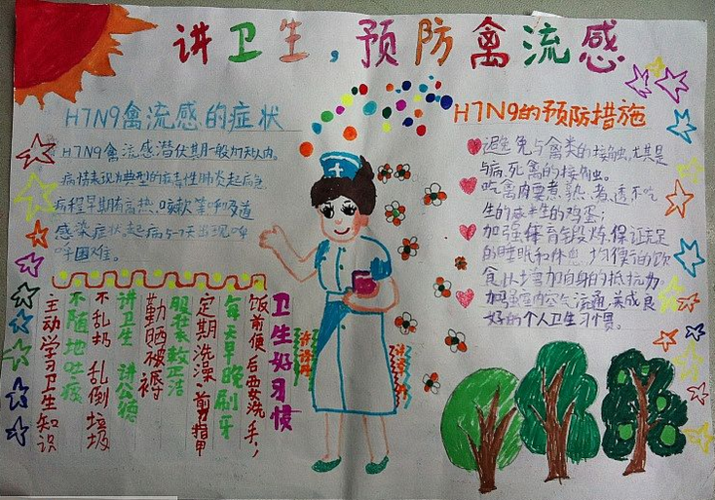 讲卫生,预防禽流感
H7N9禽流感的症状
H7N9禽流感潜伏期一般为7天以内。
病情表现为典型的病毒性肺炎起病急
病程早期有高热、咳嗽等呼吸道
感染症状,起病5-7天出现呼
吸困难。
H7N9的预防措施
避免与禽类的接触,尤其是
与病、死禽的接触。
吃禽肉要煮熟、煮透不吃
生的或半生的鸡蛋;
加强体育锻炼,保证充足
的睡眠和休息,均衡的饮
食状增加自身的抵抗力
加强室内空气流通,养成良
好的个人卫生习惯。
卫生好习惯
饭前便后要洗手,
每天早晚刷牙
定期洗澡 剪指甲
服装要整洁
勤晒被褥
讲卫生 讲公德
不乱扔 乱倒垃圾
不随地吐痰
主动学习卫生知识